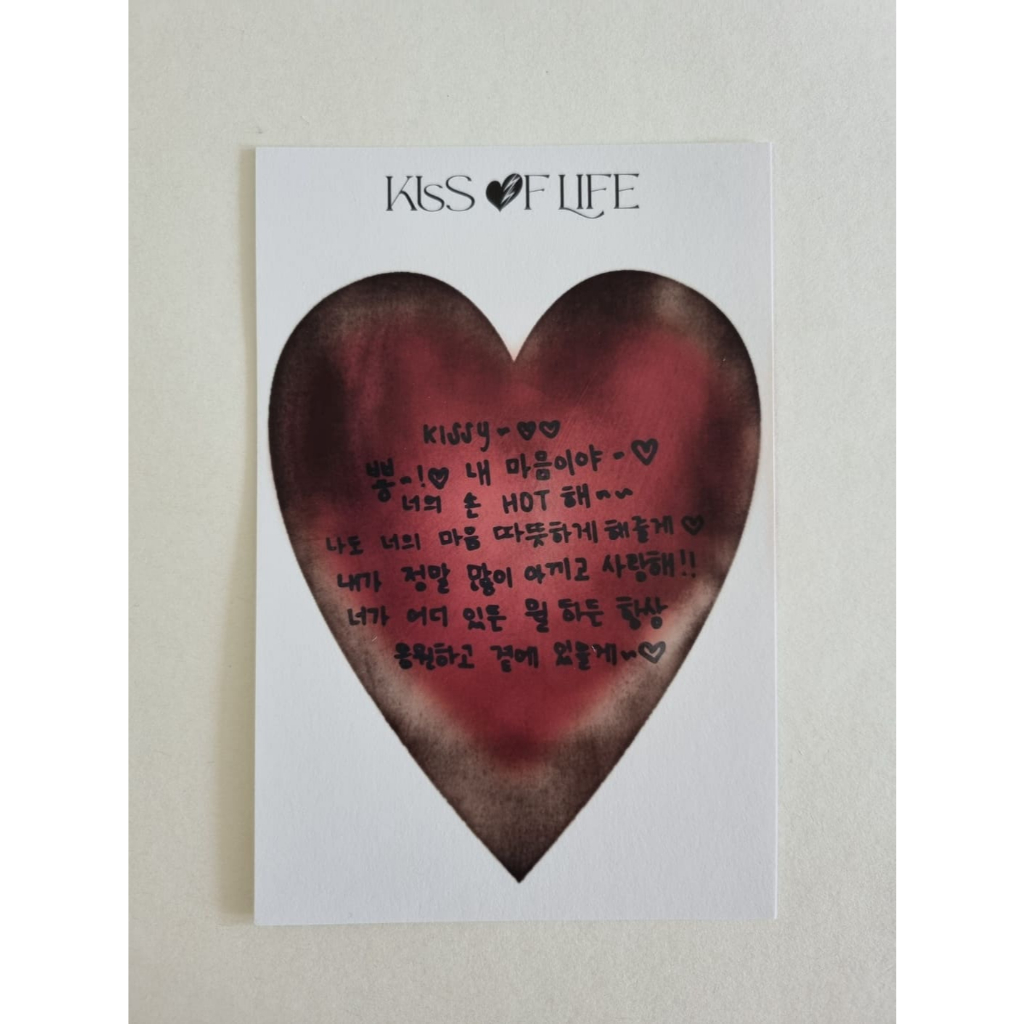 KISS OF LIFE
KISSY~♡♡
뿅~!♡ 내 마음이야~♡
너의 손 HOT 해~~
나도 너의 마음 따뜻하게 해줄게♡
내가 정말 많이 아끼고 사랑해!!
너가 어디 있든 뭘 하든 항상
응원하고 곁에 있을게~♡